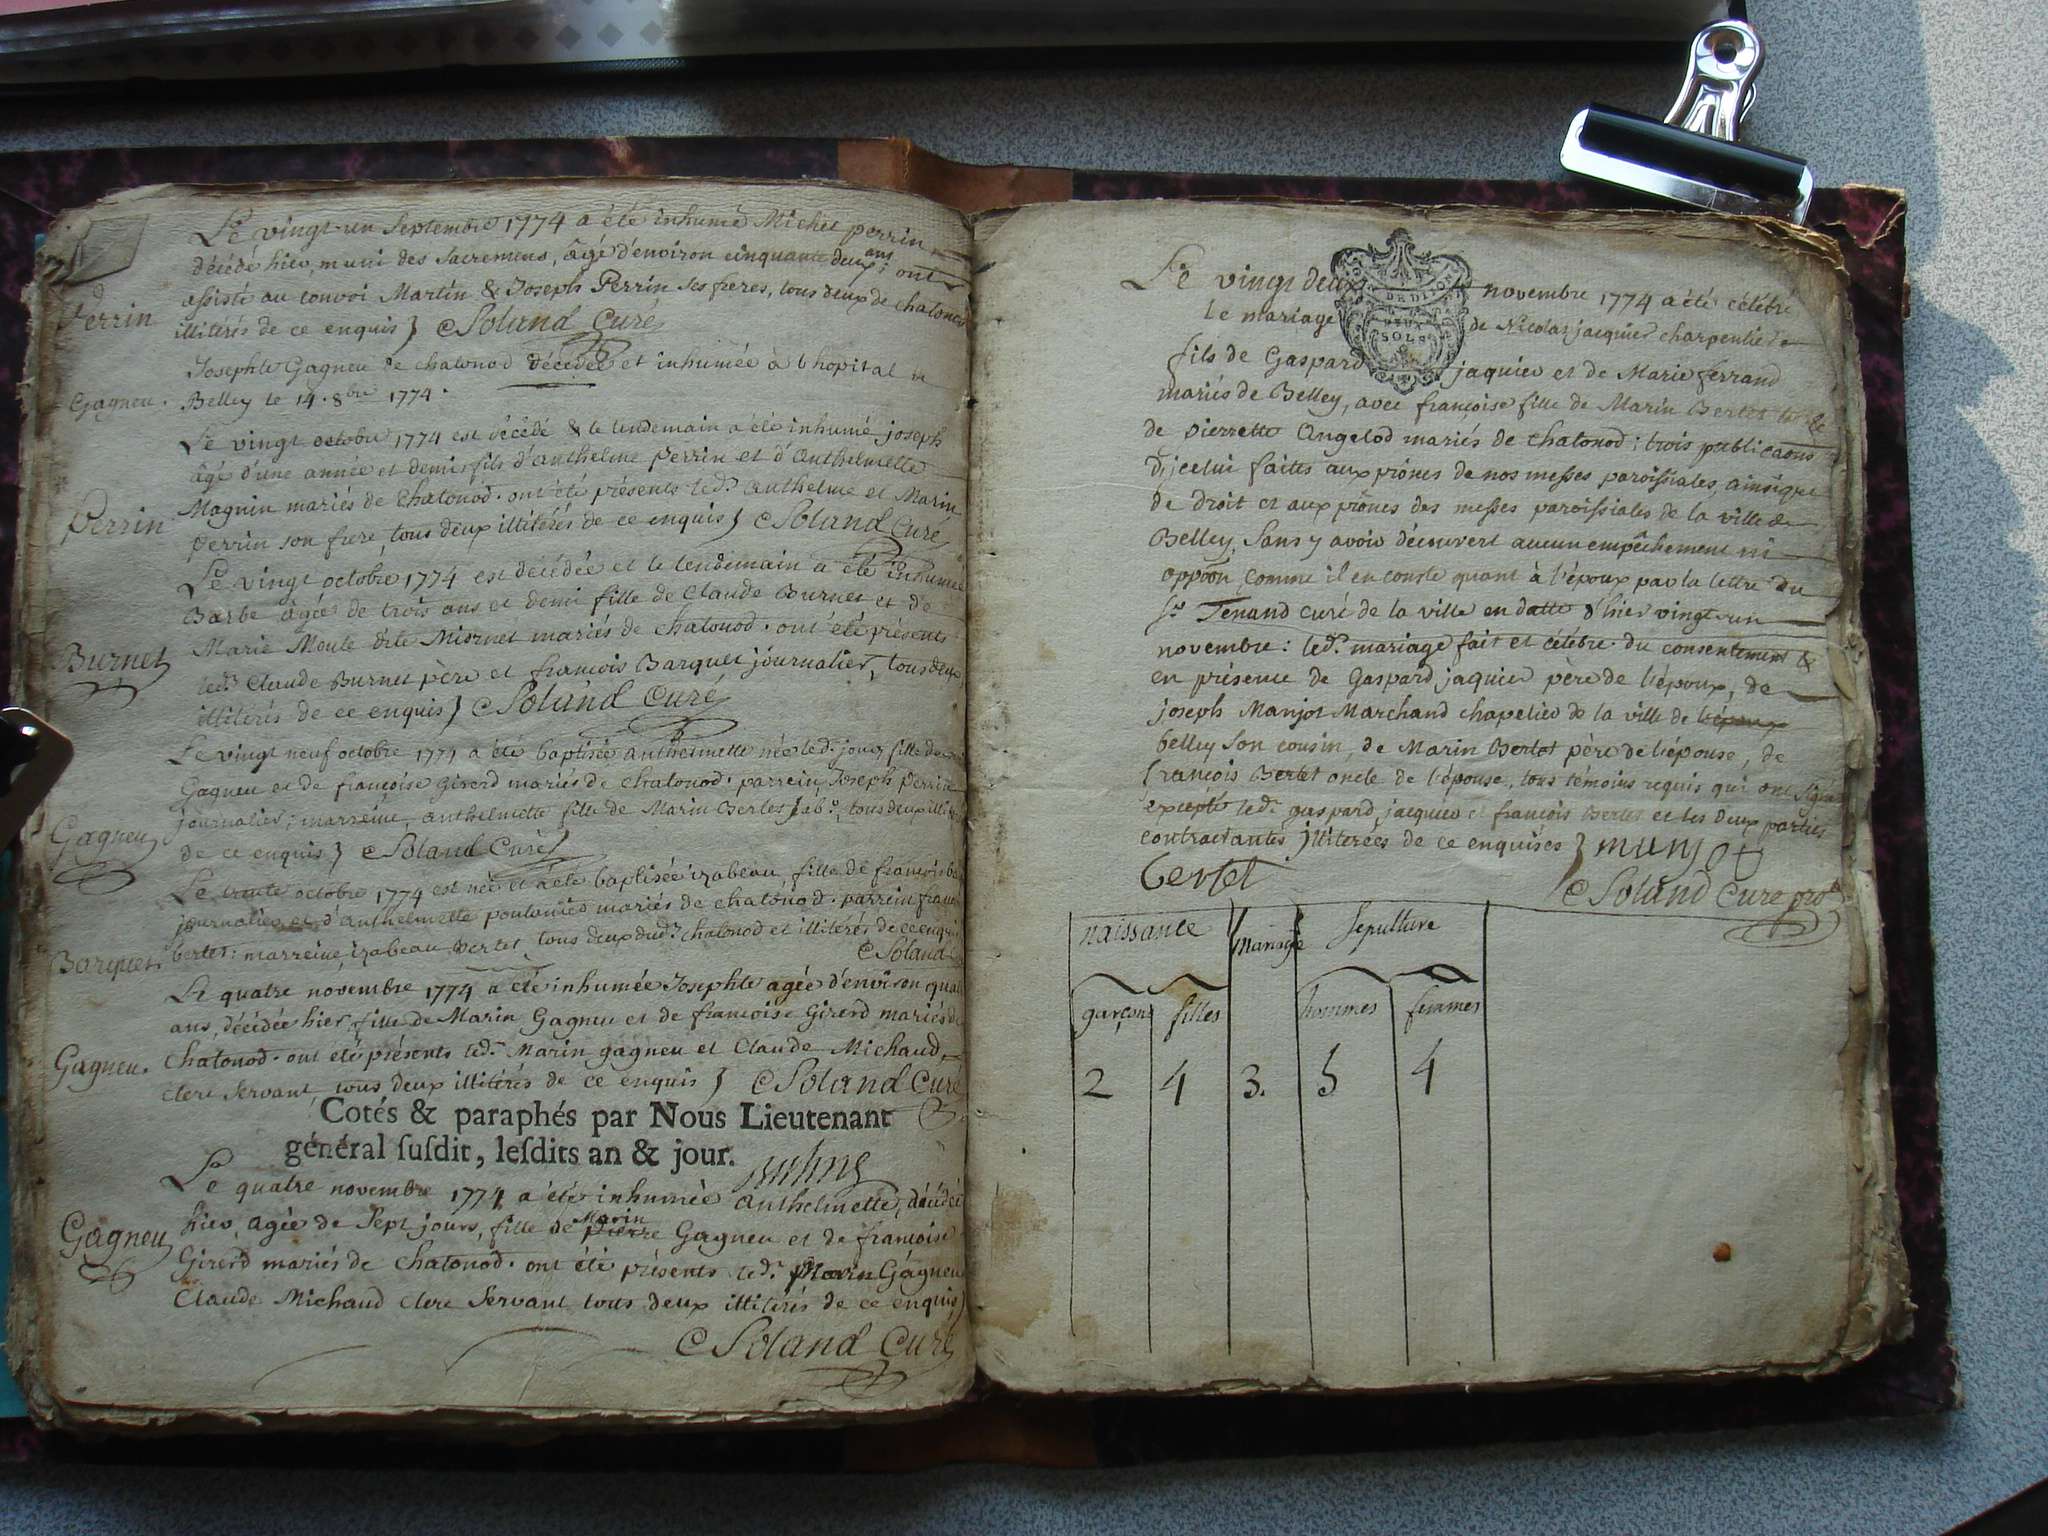 Le vingt-un Septembre 1774 a été inhumé Michel perrin
décédé hier, muni des Sacremens, âgé d'environ cinquante deux ans; ont
Perrin
assisté au convoi Martin & Joseph Perrin ses freres, tous deux de chatonod
illitérés de ce enquis } Soland Curé
Josephte Gagneu de chatonod décédée et inhumée à l'hopital
Gagneu.
Belley le 14. 8bre 1774.
Le vingt octobre 1774 est décédé & le lendemain a été inhumé joseph
âgé d'une année et demi, fils d'anthelme perrin et d'anthelmette
Perrin
Magnin mariés de Chatonod. ont été présents led. anthelme et Marin
perrin son frere, tous deux illitérés de ce enquis } Soland Curé
Le vingt octobre 1774 est décédée et le lendemain a été inhumée
Barbe âgée de trois ans et demi fille de Claude Burnet et de
Burnet
Marie Moute dite Miornet mariés de chatonod. ont été présents
led. Claude Burnet père et francois Barquet journalier, tous deux
illitérés de ce enquis } Soland Curé
Le vingt neuf octobre 1774 a été baptisée anthelmette née led. jour, fille de
Gagneu et de françoise Girerd mariés de chatonod. parrein Joseph perrin
Gagneu
journalier; marreine, anthelmette fille de Marin Bertet lab., tous deux
de ce enquis } Soland Curé
Le trente octobre 1774 est née et a été baptisée izabeau, fille de francois
journalier et d'anthelmette pontanier mariés de chatonod. parrein
Barquet.
bertet; marreine, izabeau Bertet, tous deux dud. chatonod et illitérés de ce enquis
Soland
Le quatre novembre 1774 a été inhumée Josephte agée d'environ
ans, décédée hier, fille de Marin Gagneu et de francoise Girerd mariés de
Gagneu.
Chatonod. ont été présents led. Marin gagneu et Claude Michaud,
clerc servant, tous deux illitérés de ce enquis } Soland Curé
Cotés & paraphés par Nous Lieutenant
général susdit, lesdits an & jour.
Le quatre novembre 1774 a été inhumée anthelmette, décédée
hier, agée de Sept jours, fille de pierre Marin Gagneu et de francoise
Gagneu
Girerd mariés de chatonod. ont été présents led. Marin Gagneu
Claude Michaud clerc Servant tous deux illitérés de ce enquis }
Soland Curé
Le vingt deux novembre 1774 a été célébré
le mariage de Nicolas jacquier charpentier
DEUX
SOLS
fils de Gaspard jaquier et de Marie ferrand
mariés de Belley, avec françoise fille de Marin Bertet &
de pierrette Angelod mariés de chatonod; trois publicaons
d'icelui faites aux prônes de nos messes paroissiales, ainsi que
de droit et aux prônes des messes paroissiales de la ville de
Belley, Sans y avoir découvert aucun empêchement ni
oppoôn comme il en conste quant à l'époux par la lettre du
Sr. Tenand curé de la ville en datte d'hier vingt-un
novembre: led. mariage fait et célébré du consentement &
en présence de Gaspard jaquier père de l'époux, de
joseph Manjot Marchand chapelier de la ville de l'époux
belley son cousin, de Marin Bertet père de l'épouse, de
francois Bertet oncle de l'épouse, tous témoins requis qui ont signé
excepté led. gaspard jacquier et francois Bertet et les deux parties
contractantes illiterées de ce enquises } munjot
bertet
Soland Curé
naissance mariage sepulture
garçons filles hommes femmes
2 4 3. 5 4